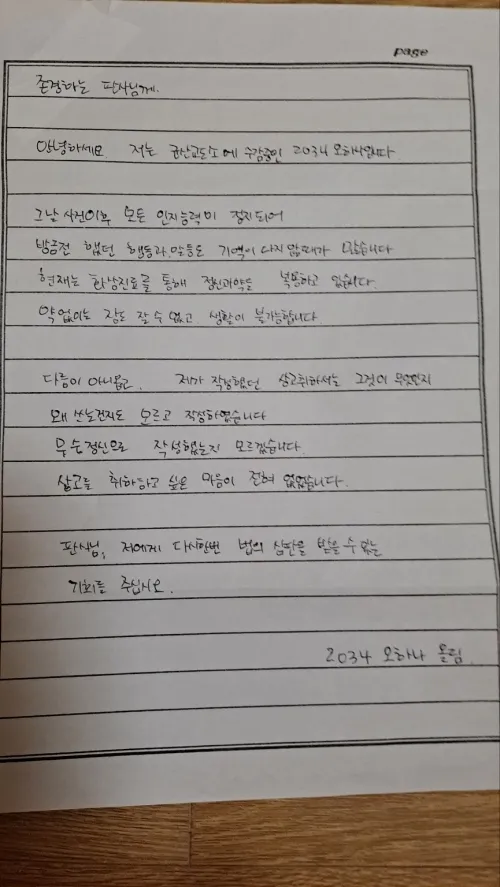 page
존경하는 판사님께.
안녕하세요 저는 군산교도소에 수감중인 2034 오하나입니다.
그날 사건이후 모든 인지능력이 정지되어
방금전 했던 행동과, 말들도 기억이 나지 않때가 많습니다
현재는 화상진료를 통해 정신과약을 복용하고 있습니다.
약 없이는 잠도 잘 수 없고, 생활이 불가능합니다
다름이 아니옵고, 저가 작성했던 상고취하서는 그것이 무엇인지
왜 쓰는건지도 모르고 작성하였습니다
무슨정신으로 작성했는지 모르겠습니다.
상고를 취하하고 싶은 마음이 전혀 없었습니다.
판사님, 저에게 다시한번 법의 심판을 받을 수 있는
기회를 주십시오.
2034 오하나 올림.